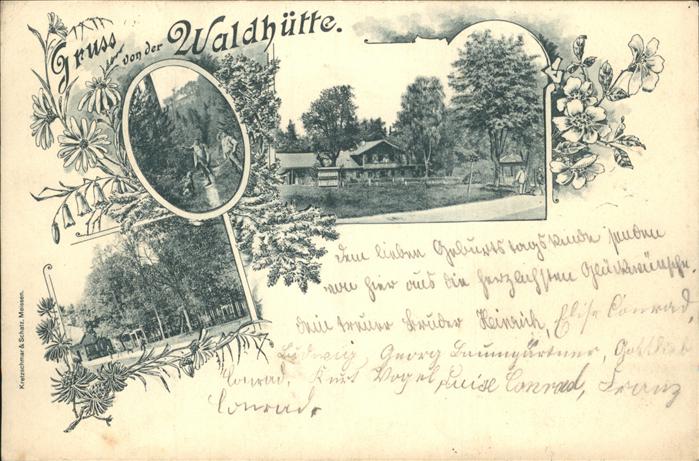 Gruss von der Waldhütte.
dem lieben Geburtstagskinde senden
von hier aus die herzlichsten Glückwünsche
dein treuer Bruder Heinrich, Elise Conrad,
Ludwig Georg Baumgärtner, Gottlieb
Conrad, Kurt Vogel, Luise Conrad, Franz
Conrad.
Kretzschmar & Schatz, Meissen.